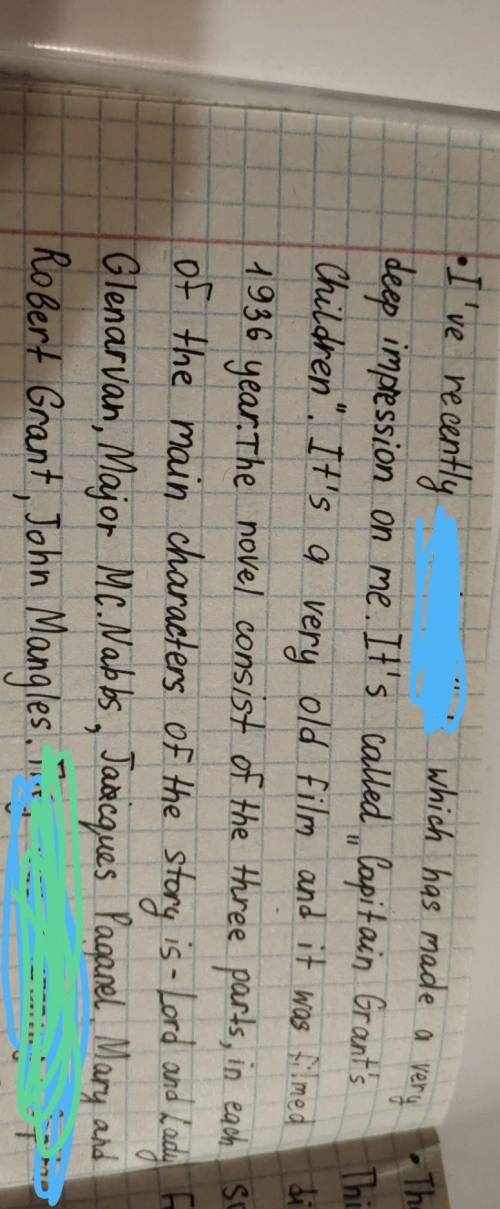 • I've recently which has made a very
deep impression on me. It's called „Capitain Grant's
Children". It's a very old film and it was filmed
1936 year. The novel consist of the three parts, in each
of the main characters of the story is - Lord and Lady
Glenarvan, Major Mc.Nabbs, Jacques Paganel, Mary and
Robert Grant, John Mangles.
• Th
Thi
di
su